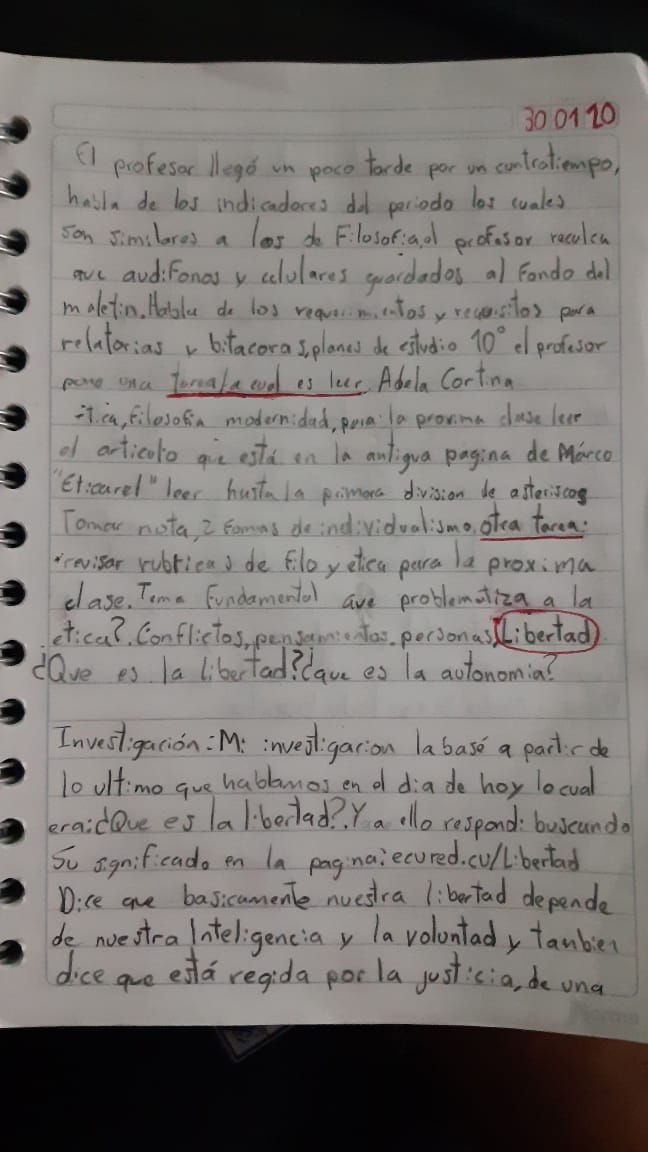 30 01 20
El profesor llegó un poco tarde por un contratiempo,
habla de los indicadores del periodo los cuales
son similares a los de Filosofia, el profesor recalca
que audifonos y celulares guardados al Fondo del
maletin. Habla de los requerimientos y requisitos para
relatorias y bitacoras, planes de estudio 10° el profesor
pone una tarea la cual es leer Adela Cortina
Etica, Filosofia modernidad, para la proxima clase leer
el articulo que está en la antigua pagina de Márco
"Eticarel" leer hasta la primera division de asteriscos
Tomar nota, 2 Formas de individualismo. otra tarea:
•revisar rubricas de filo y etica para la proxima
clase. Tema Fundamental que problematiza a la
etica?. Conflictos, pensamientos, personas, Libertad
¿Que es la libertad? ¿que es la autonomia?
Investigación: Mi investigacion la basé a partir de
lo ultimo que hablamos en el dia de hoy lo cual
era: ¿Que es la libertad?. Y a ello respondi buscando
su significado en la pagina: ecured.cu/Libertad
Dice que basicamente nuestra libertad depende
de nuestra Inteligencia y la voluntad y tanbien
dice que está regida por la justicia, de una
Norma